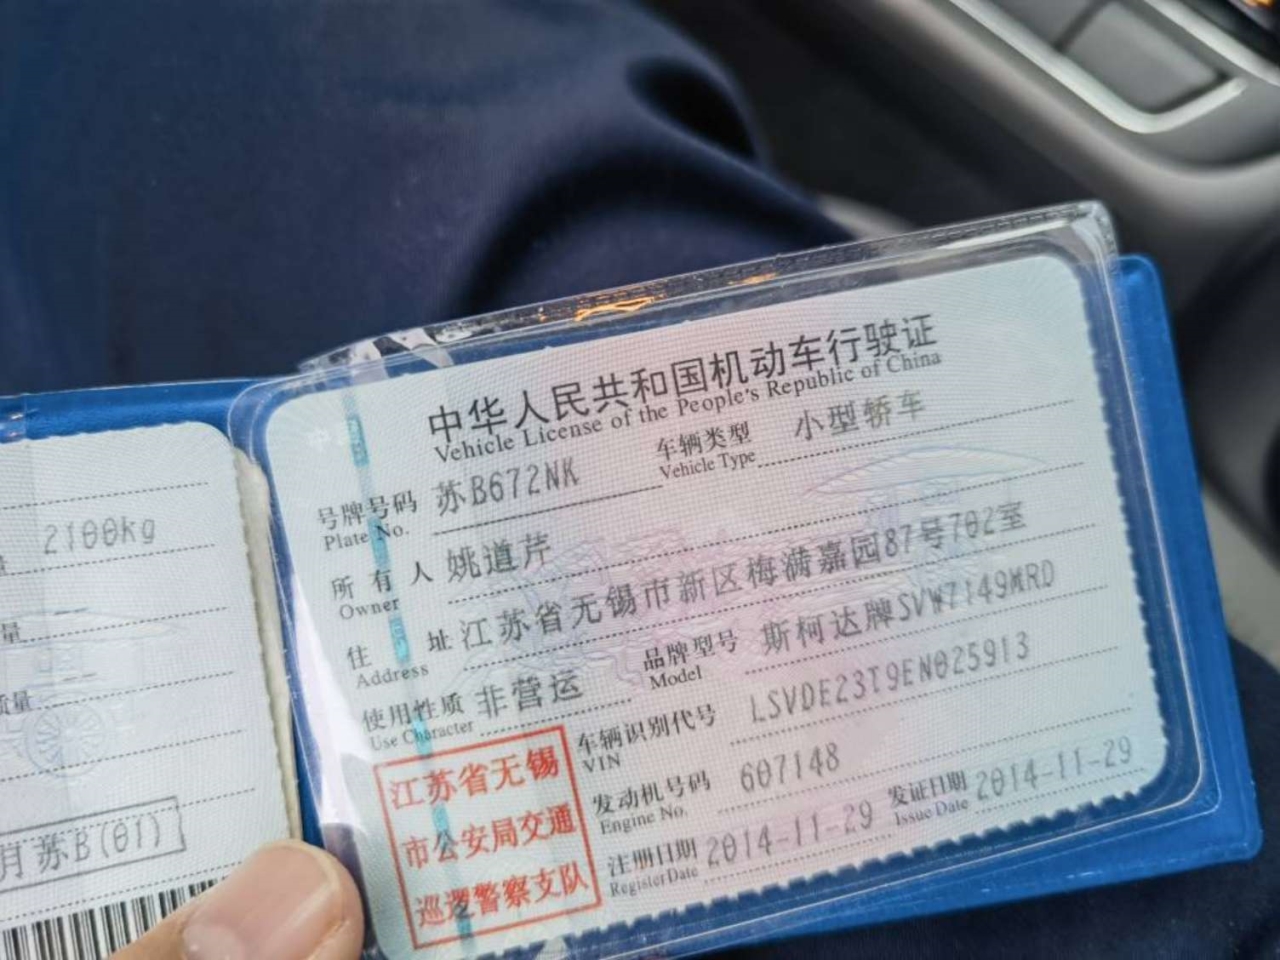 中华人民共和国机动车行驶证
Vehicle License of the People's Republic of China
号牌号码 苏B672NK 车辆类型 小型轿车
Plate No. Vehicle Type
所有人 姚道芹
Owner
住址 江苏省无锡市新区梅满嘉园87号702室
Address
使用性质 非营运 品牌型号 斯柯达牌SVW7149MRD
Use Character Model
车辆识别代号 LSVDE23T9EN025913
VIN
发动机号码 607148
Engine No.
注册日期 2014-11-29 发证日期 2014-11-29
Register Date Issue Date
江苏省无锡
市公安局交通
巡逻警察支队
量 2100kg
量
质量
月苏B(01)